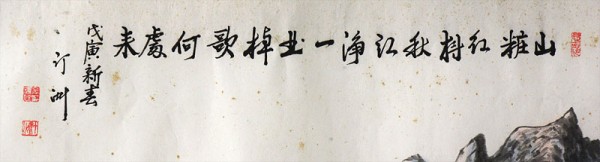 山粧红树秋江净一曲棹歌何處来
戊寅新春
汀洲